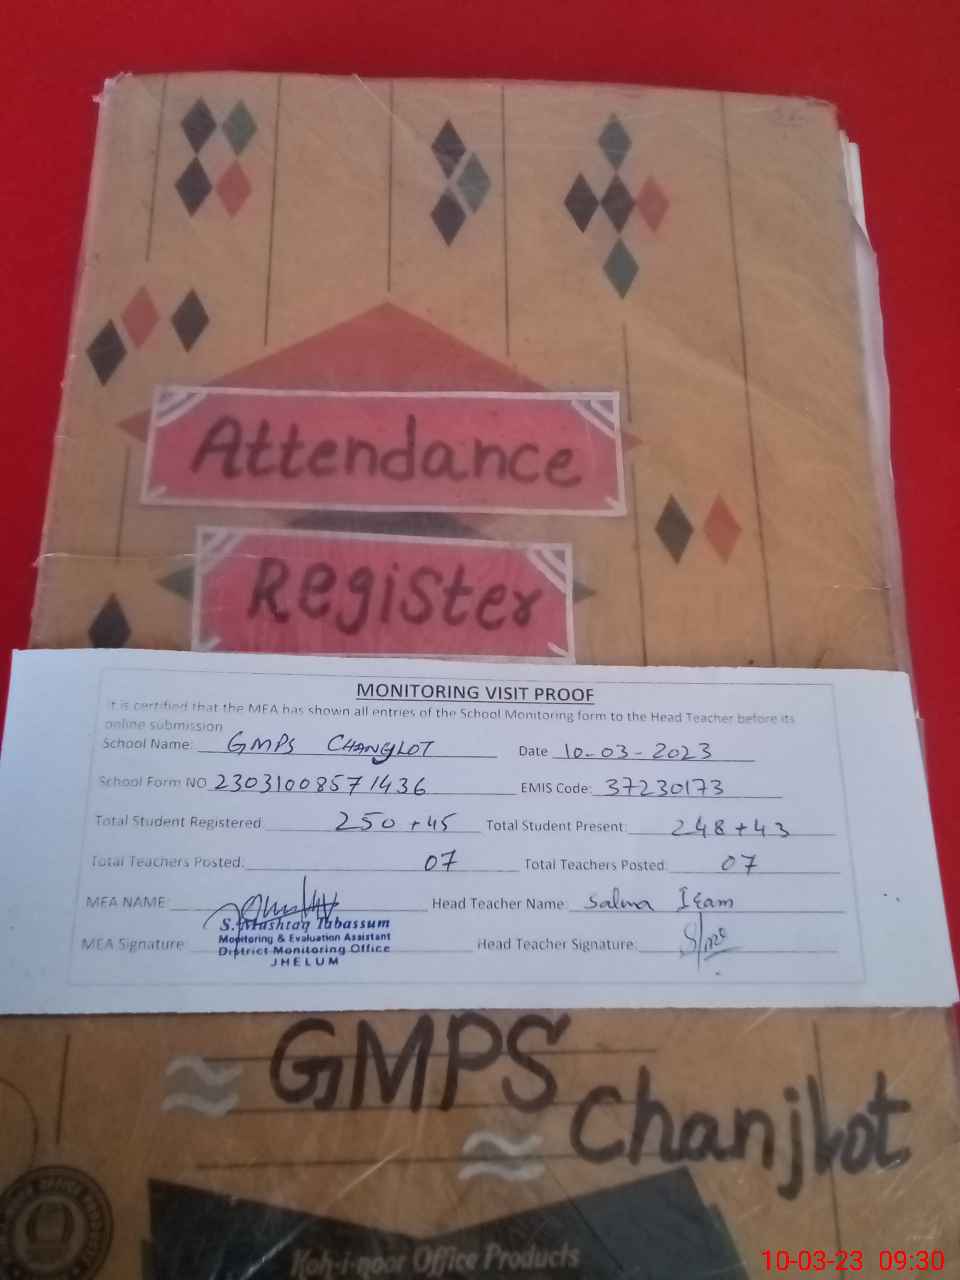 Attendance
Register
MONITORING VISIT PROOF
It is certified that the MEA has shown all entries of the School Monitoring form to the Head Teacher before its
online submission
School Name: GMPS CHANGLOT Date 10-03-2023
School Form NO 23031008571436 EMIS Code: 37230173
Total Student Registered: 250+45 Total Student Present: 248+43
Total Teachers Posted: 07 Total Teachers Posted: 07
MEA NAME: Head Teacher Name: Salma
S. Mushtaq Tabassum
Monitoring & Evaluation Assistant
MEA Signature: Head Teacher Signature:
District Monitoring Office
JHELUM
GMPS
Chanjlot
Koh-i-noor Office Products
10-03-23 09:30